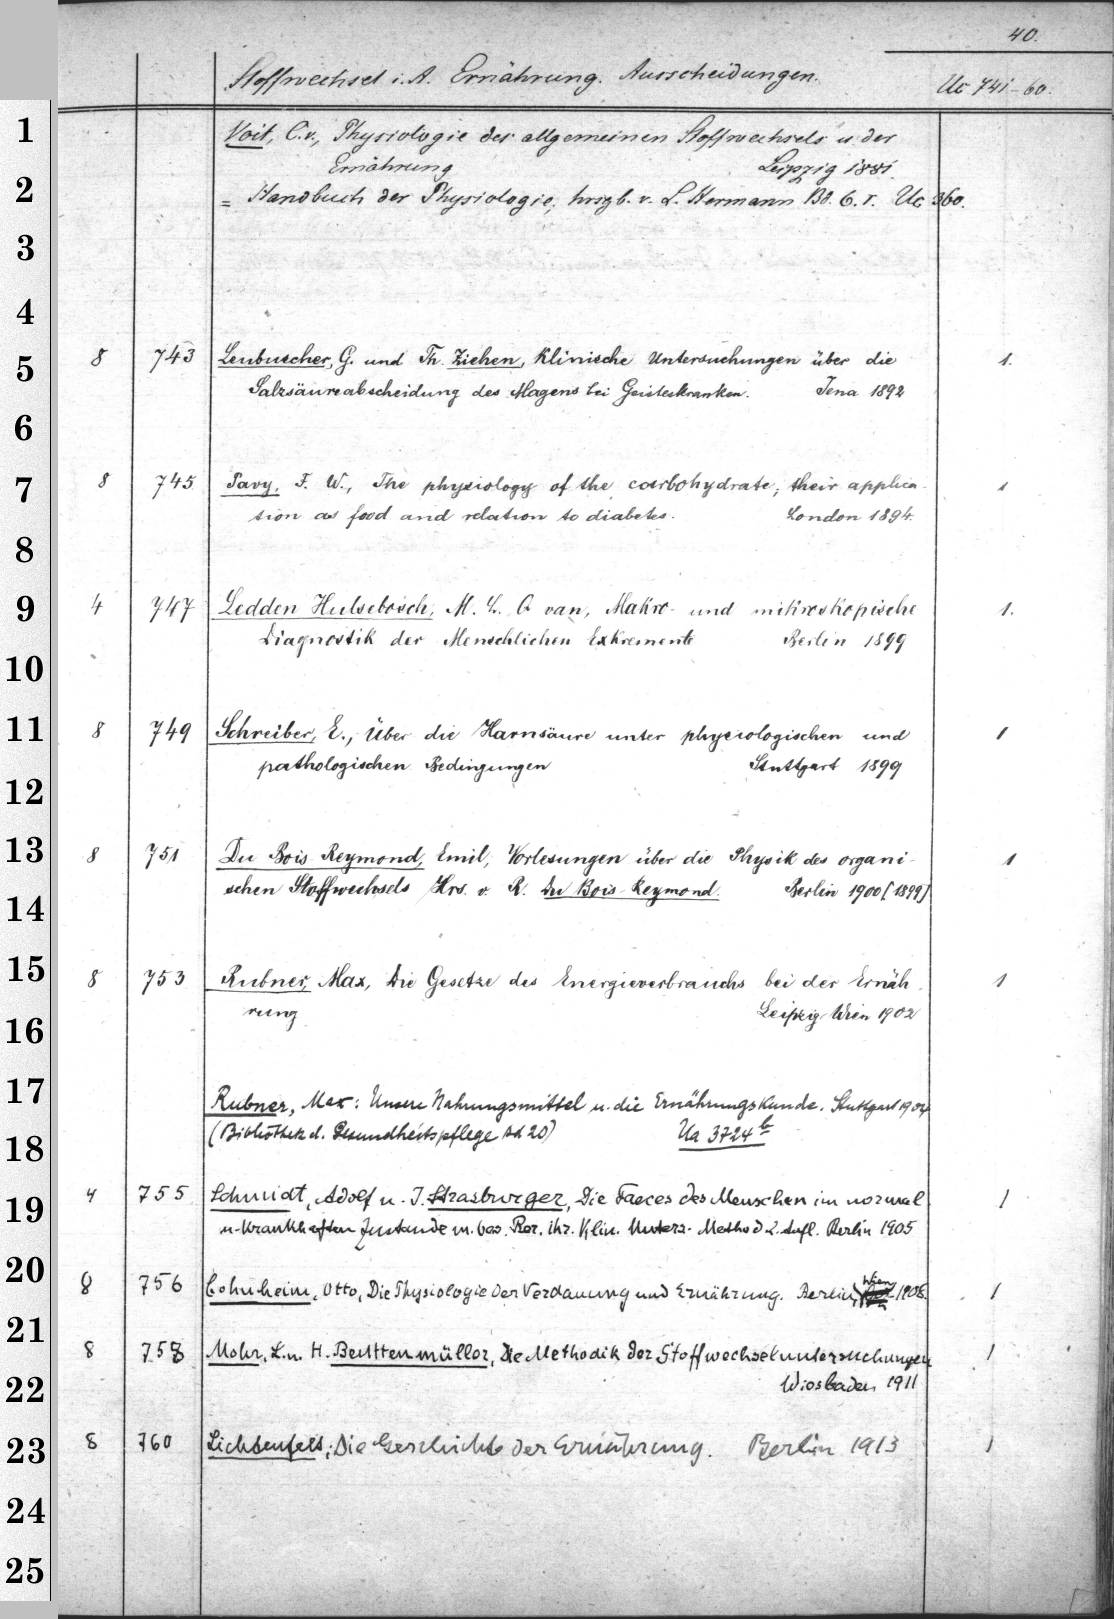 40.
Stoffwechsel i. A. Ernährung. Ausscheidungen. Uc 741-60.
1 Voit, C. v., Physiologie des allgemeinen Stoffwechsels u. der
Ernährung Leipzig 1881.
2 = Handbuch der Physiologie, hrsgb. v. L. Hermann Bd. 6. I. Uc 360.
3
4
5 8 743 Leubuscher, G. und Th. Ziehen, Klinische Untersuchungen über die 1.
Salzsäureabscheidung des Magens bei Geisteskranken. Jena 1892
6
7 8 745 Pavy, F. W., The physiology of the carbohydrate; their applica- 1
tion as food and relation to diabetes. London 1894.
8
9 4 747 Ledden Hulsebosch, M. L. Q van, Makro- und mikroskopische 1.
Diagnostik der Menschlichen Exkremente Berlin 1899
10
11 8 749 Schreiber, E., Über die Harnsäure unter physiologischen und 1
pathologischen Bedingungen Stuttgart 1899
12
13 8 751 Du Bois Reymond, Emil, Vorlesungen über die Physik des organi- 1
schen Stoffwechsels Hrs. v. R. Du Bois-Reymond. Berlin 1900 [1899]
14
15 8 753 Rubner, Max, Die Gesetze des Energieverbrauchs bei der Ernäh- 1
rung Leipzig Wien 1902
16
17 Rubner, Max: Unsere Nahrungsmittel u. die Ernährungskunde. Stuttgart 1904
(Bibliothek d. Gesundheitspflege Bd 20) Ua 3724 b
18
19 4 755 Schmidt, Adolf u. J. Strasburger, Die Faeces des Menschen im normal. 1
u. krankhaften Zustande m. bes. Ber. ihr. klin. Unters.-Method 2. Aufl. Berlin 1905
20 8 756 Cohnheim, Otto, Die Physiologie der Verdauung und Ernährung. Berlin, Wien 1908. 1
21 8 758 Mohr, L. u. H. Beuttenmüller, Die Methodik der Stoffwechseluntersuchungen 1
22 Wiesbaden 1911
23 8 760 Lichtenfelt, Die Geschichte der Ernährung. Berlin 1913 1
24
25